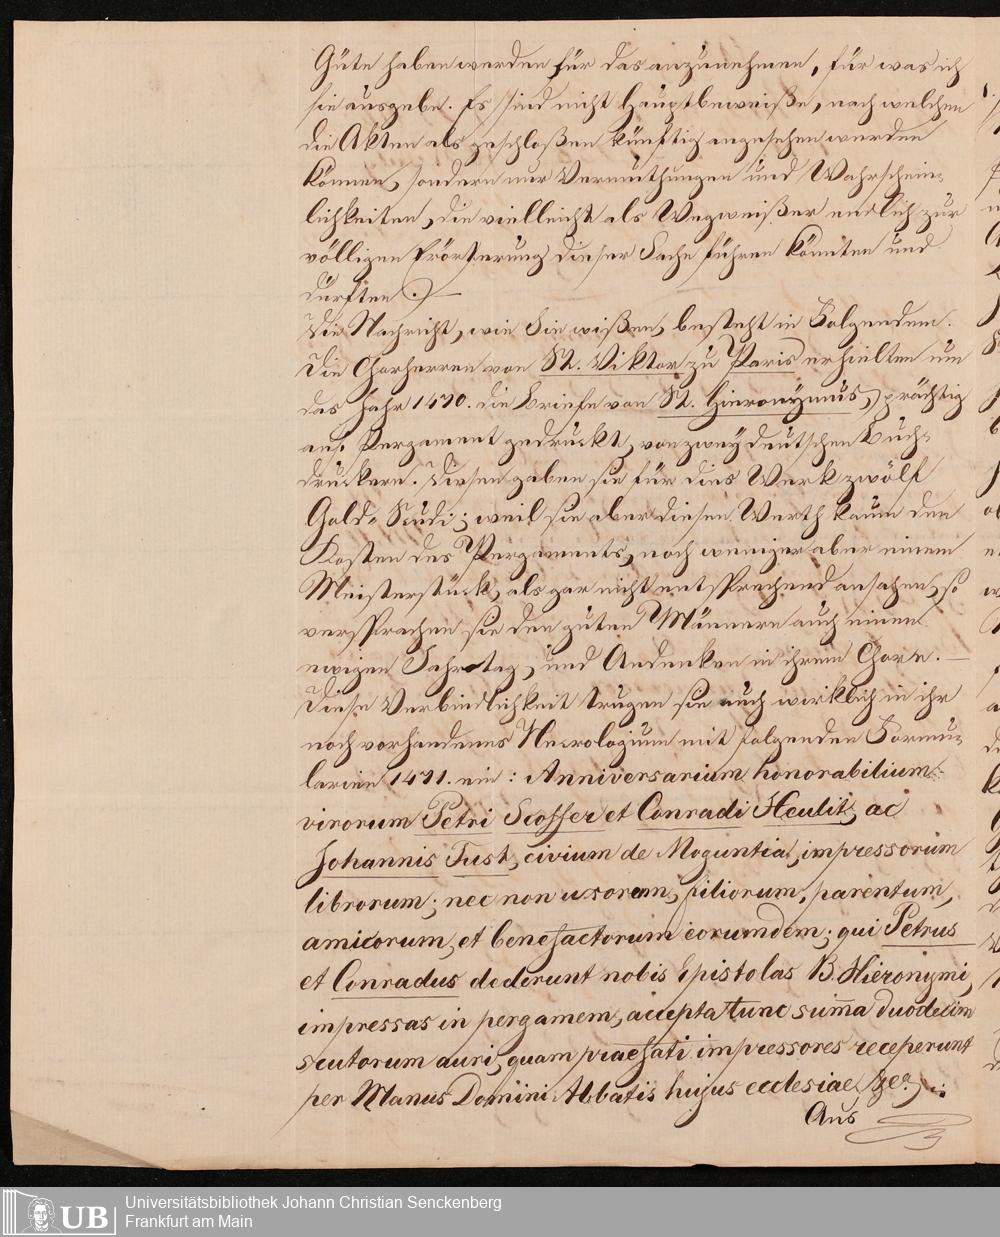 Güte haben werden für das anzunehmen, für was ich
sie ausgebe. Es sind nicht Hauptbeweiße, nach welchen
die Akten als geschloßen künftig angesehen werden
können, sondern nur Vermuthungen und Wahrschein-
lichkeiten, die vielleicht als Wegweißer endlich zur
völligen Erörterung dieser Sache führen könnten und
dürften.) —
Die Nachricht, wie Sie wißen, besteht in Folgendem.
Die Chorherren von St. Viktor zu Paris erhielten um
das Jahr 1470. die Briefe von St. Hieronymus, prächtig
auf Pergament gedruckt, von zwey deutschen Buch-
druckern. Diesen gaben sie für dies Werk zwölf
Gold-Scudi; weil sie aber diesen Werth kaum den
Kosten des Pergaments, noch weniger aber einem
Meisterstück, als gar nicht entsprechend ansahen, so
versprachen sie den guten Männern auch einen
ewigen Jahrtag, und Andenken in ihrem Chore. —
Diese Verbindlichkeit trugen sie auch wirklich in ihr
noch vorhandenes Necrologium mit folgenden Formu-
larien 1471. ein: Anniversarium honorabilium
virorum Petri Scoffer et Conradi Heulit, ac
Johannis Fust, civium de Moguntia, impressorum
librorum; nec non uxorum, filiorum, parentum,
amicorum, et benefactorum eorumdem; qui Petrus
et Conradus dederunt nobis Epistolas B. Hieronymi,
impressas in pergamem, accepta tunc sum̄a duodecim
scutorum auri, quam praefati impressores receperunt
per Manus Domini Abbatis hujus ecclesiae &c.
Aus
Universitätsbibliothek Johann Christian Senckenberg
Frankfurt am Main
UB